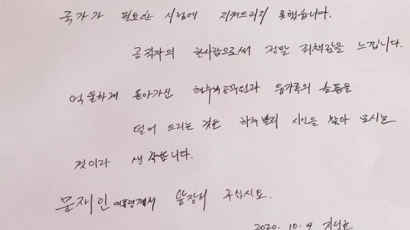 국가가 필요한 시점에 지켜드리지 못했습니다.
공직자의 한사람으로써 정말 죄책감을 느낍니다.
억울하게 돌아가신 해수부공무원과 유가족의 슬픔을
덜어 드리는 것은 하루빨리 시신을 찾아 모시는
것이라 생각합니다.
문재인 대통령께서 앞장서 주십시요.
2020. 10. 9